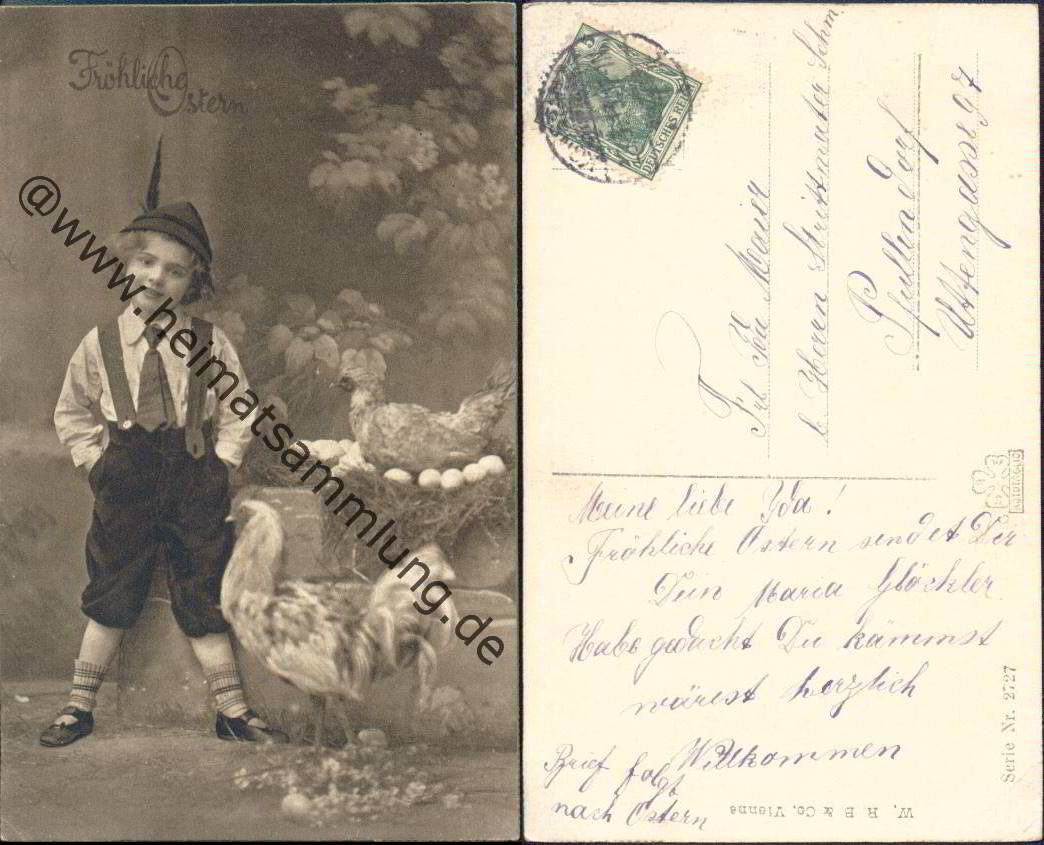 Fröhliche
Ostern
@www.heimatsammlung.de
DEUTSCHES REICH
Frl. Ida Maier
Herrn Strittmatter Schm.
Pfullendorf
Uttengasse 97
Meine liebe Ida!
Fröhliche Ostern sendet Dir
Dein Maria Glöckler.
Habe gedacht Du kämmst
wärest herzlich
Willkommen
Brief folgt
nach Ostern
W. R. B & Co, Vienne
Serie Nr. 2727